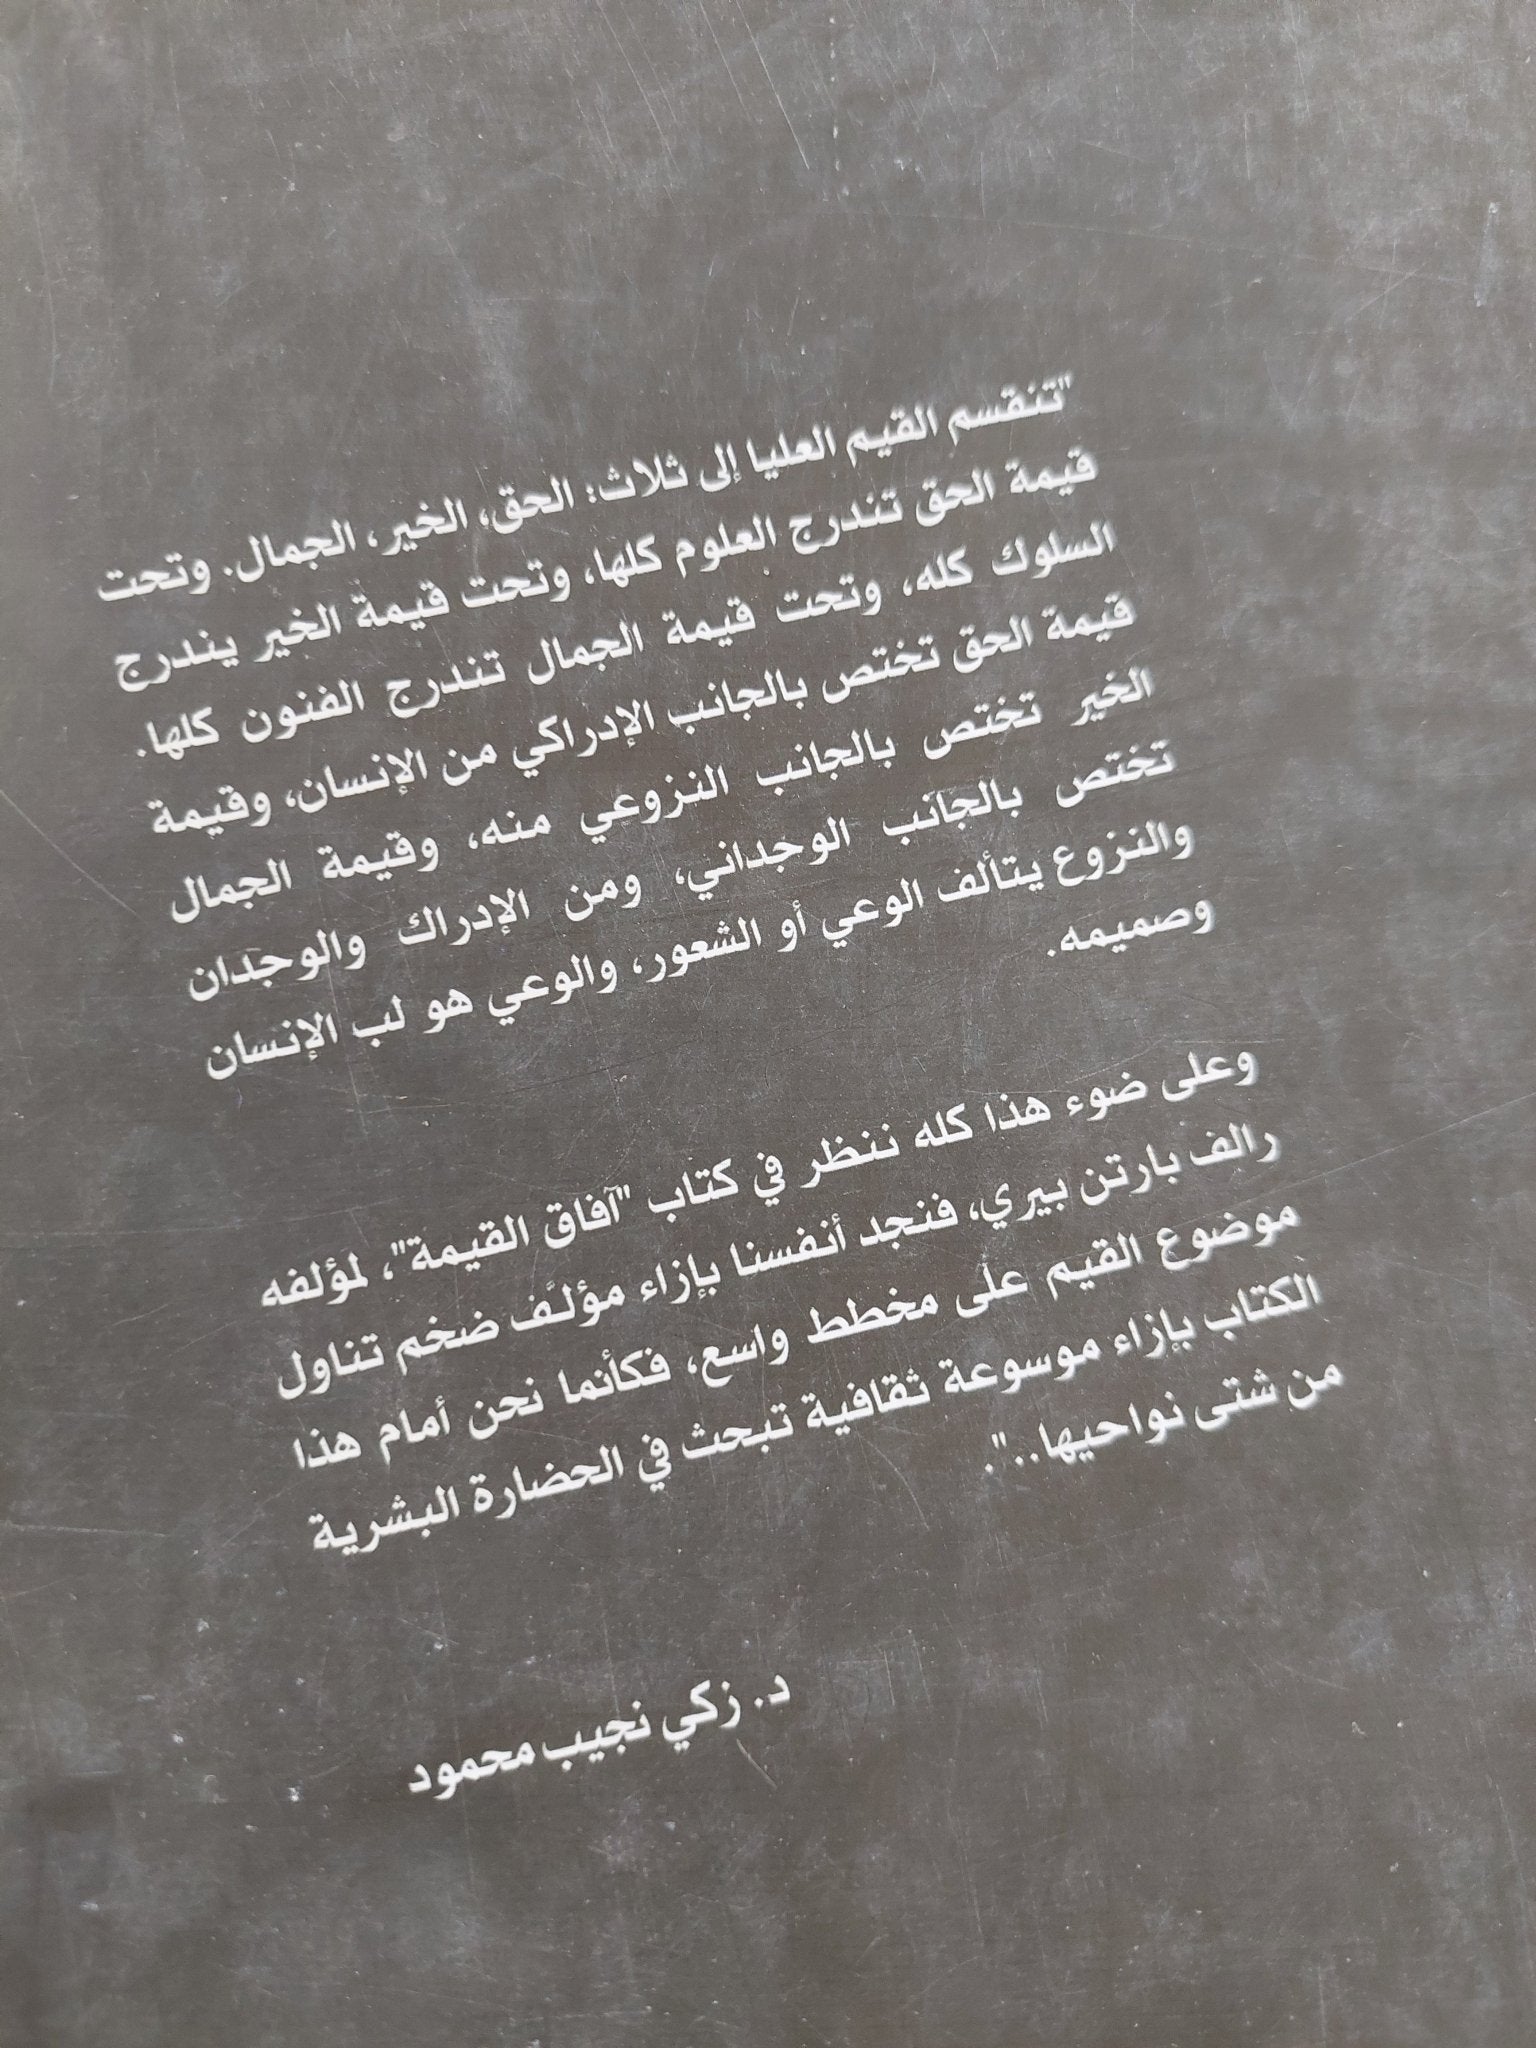 "تنقسم القيم العليا إلى ثلاث: الحق، الخير، الجمال. وتحت
قيمة الحق تندرج العلوم كلها، وتحت قيمة الخير يندرج
السلوك كله، وتحت قيمة الجمال تندرج الفنون كلها.
قيمة الحق تختص بالجانب الإدراكي من الإنسان، وقيمة
الخير تختص بالجانب النزوعي منه، وقيمة الجمال
تختص بالجانب الوجداني، ومن الإدراك والوجدان
والنزوع يتألف الوعي أو الشعور، والوعي هو لب الإنسان
وصميمه.
وعلى ضوء هذا كله ننظر في كتاب "آفاق القيمة"، لمؤلفه
رالف بارتن بيري، فنجد أنفسنا بإزاء مؤلَّف ضخم تناول
موضوع القيم على مخطط واسع، فكأنما نحن أمام هذا
الكتاب بإزاء موسوعة ثقافية تبحث في الحضارة البشرية
من شتى نواحيها..".
د. زكي نجيب محمود